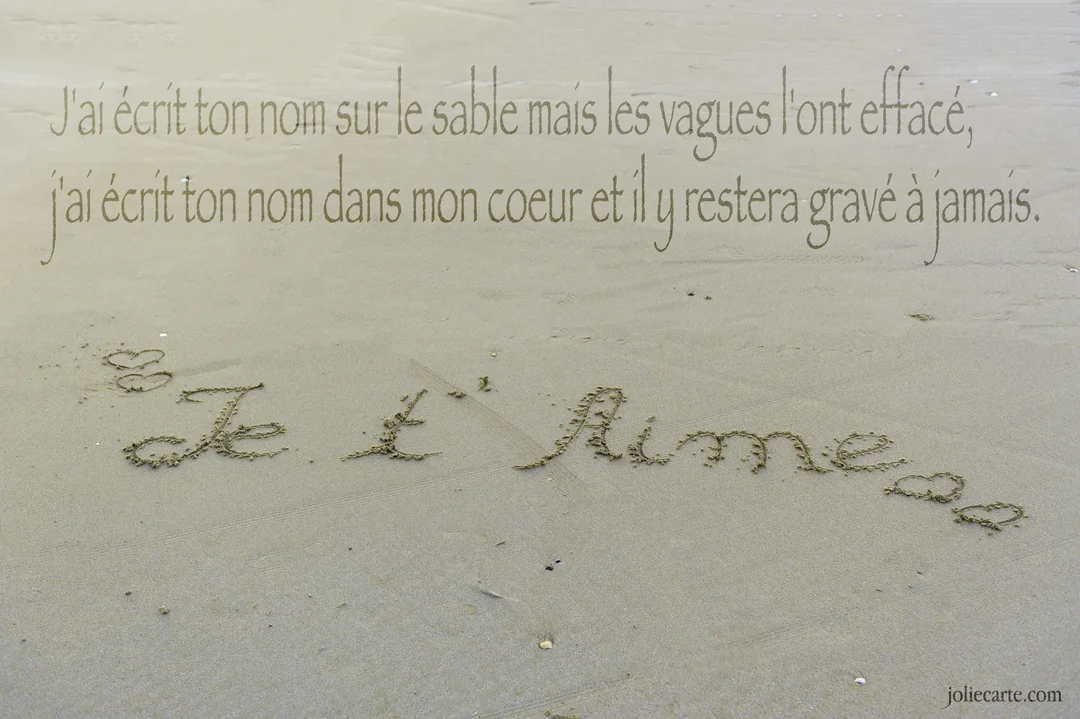 J'ai écrit ton nom sur le sable mais les vagues l'ont effacé,
j'ai écrit ton nom dans mon coeur et il y restera gravé à jamais.
Je t'Aime
joliecarte.com